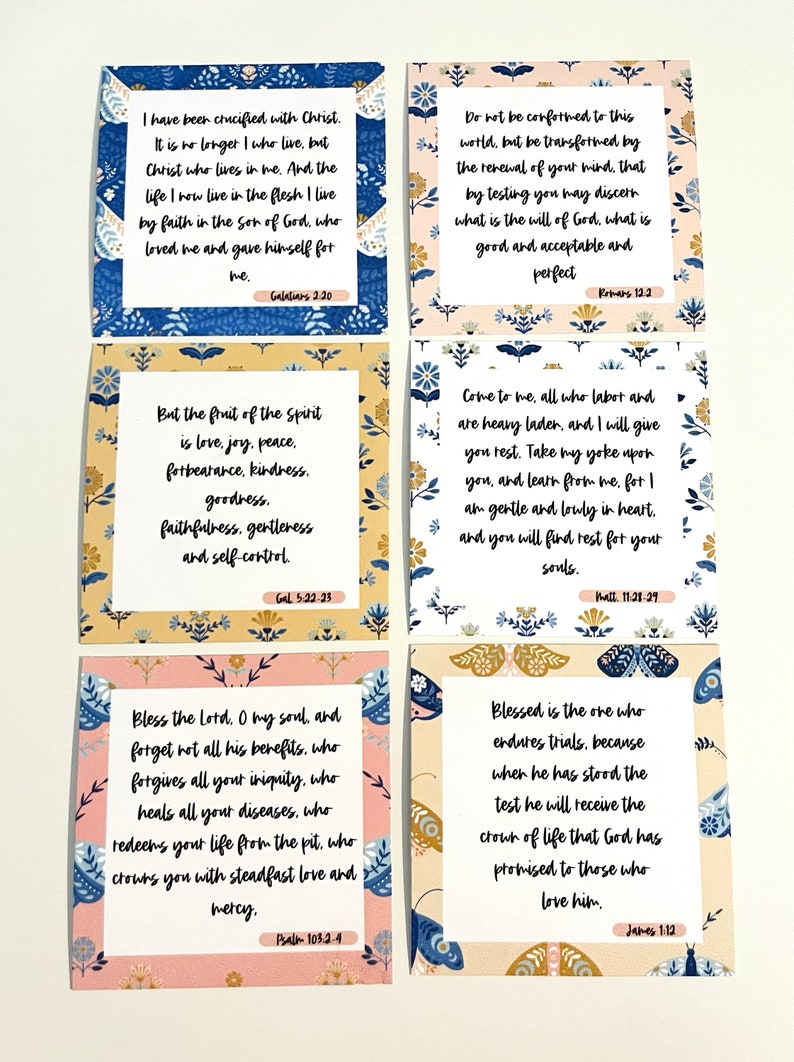 I have been crucified with Christ.
It is no longer I who live, but
Christ who lives in me. And the
life I now live in the flesh I live
by faith in the Son of God, who
loved me and gave himself for
me.
Galatians 2:20
Do not be conformed to this
world, but be transformed by
the renewal of your mind, that
by testing you may discern
what is the will of God, what is
good and acceptable and
perfect
Romans 12:2
But the fruit of the Spirit
is love, joy, peace,
forbearance, kindness,
goodness,
faithfulness, gentleness
and self-control.
Gal. 5:22-23
Come to me, all who labor and
are heavy laden, and I will give
you rest. Take my yoke upon
you, and learn from me, for I
am gentle and lowly in heart,
and you will find rest for your
souls.
Matt. 11:28-29
Bless the Lord, O my soul, and
forget not all his benefits, who
forgives all your iniquity, who
heals all your diseases, who
redeems your life from the pit, who
crowns you with steadfast love and
mercy,
Psalm 103:2-4
Blessed is the one who
endures trials, because
when he has stood the
test he will receive the
crown of life that God has
promised to those who
love him.
James 1:12